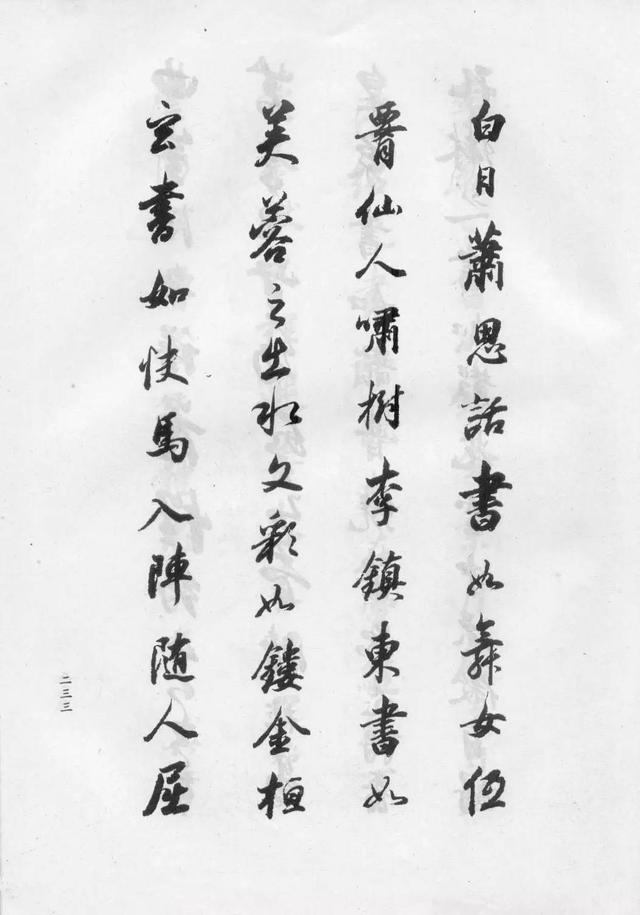 白日蕭思話書如舞女低
腰仙人嘯樹李鎮東書如
芙蓉之出水文彩如鏤金桓
玄書如快馬入陣随人屈
二三三